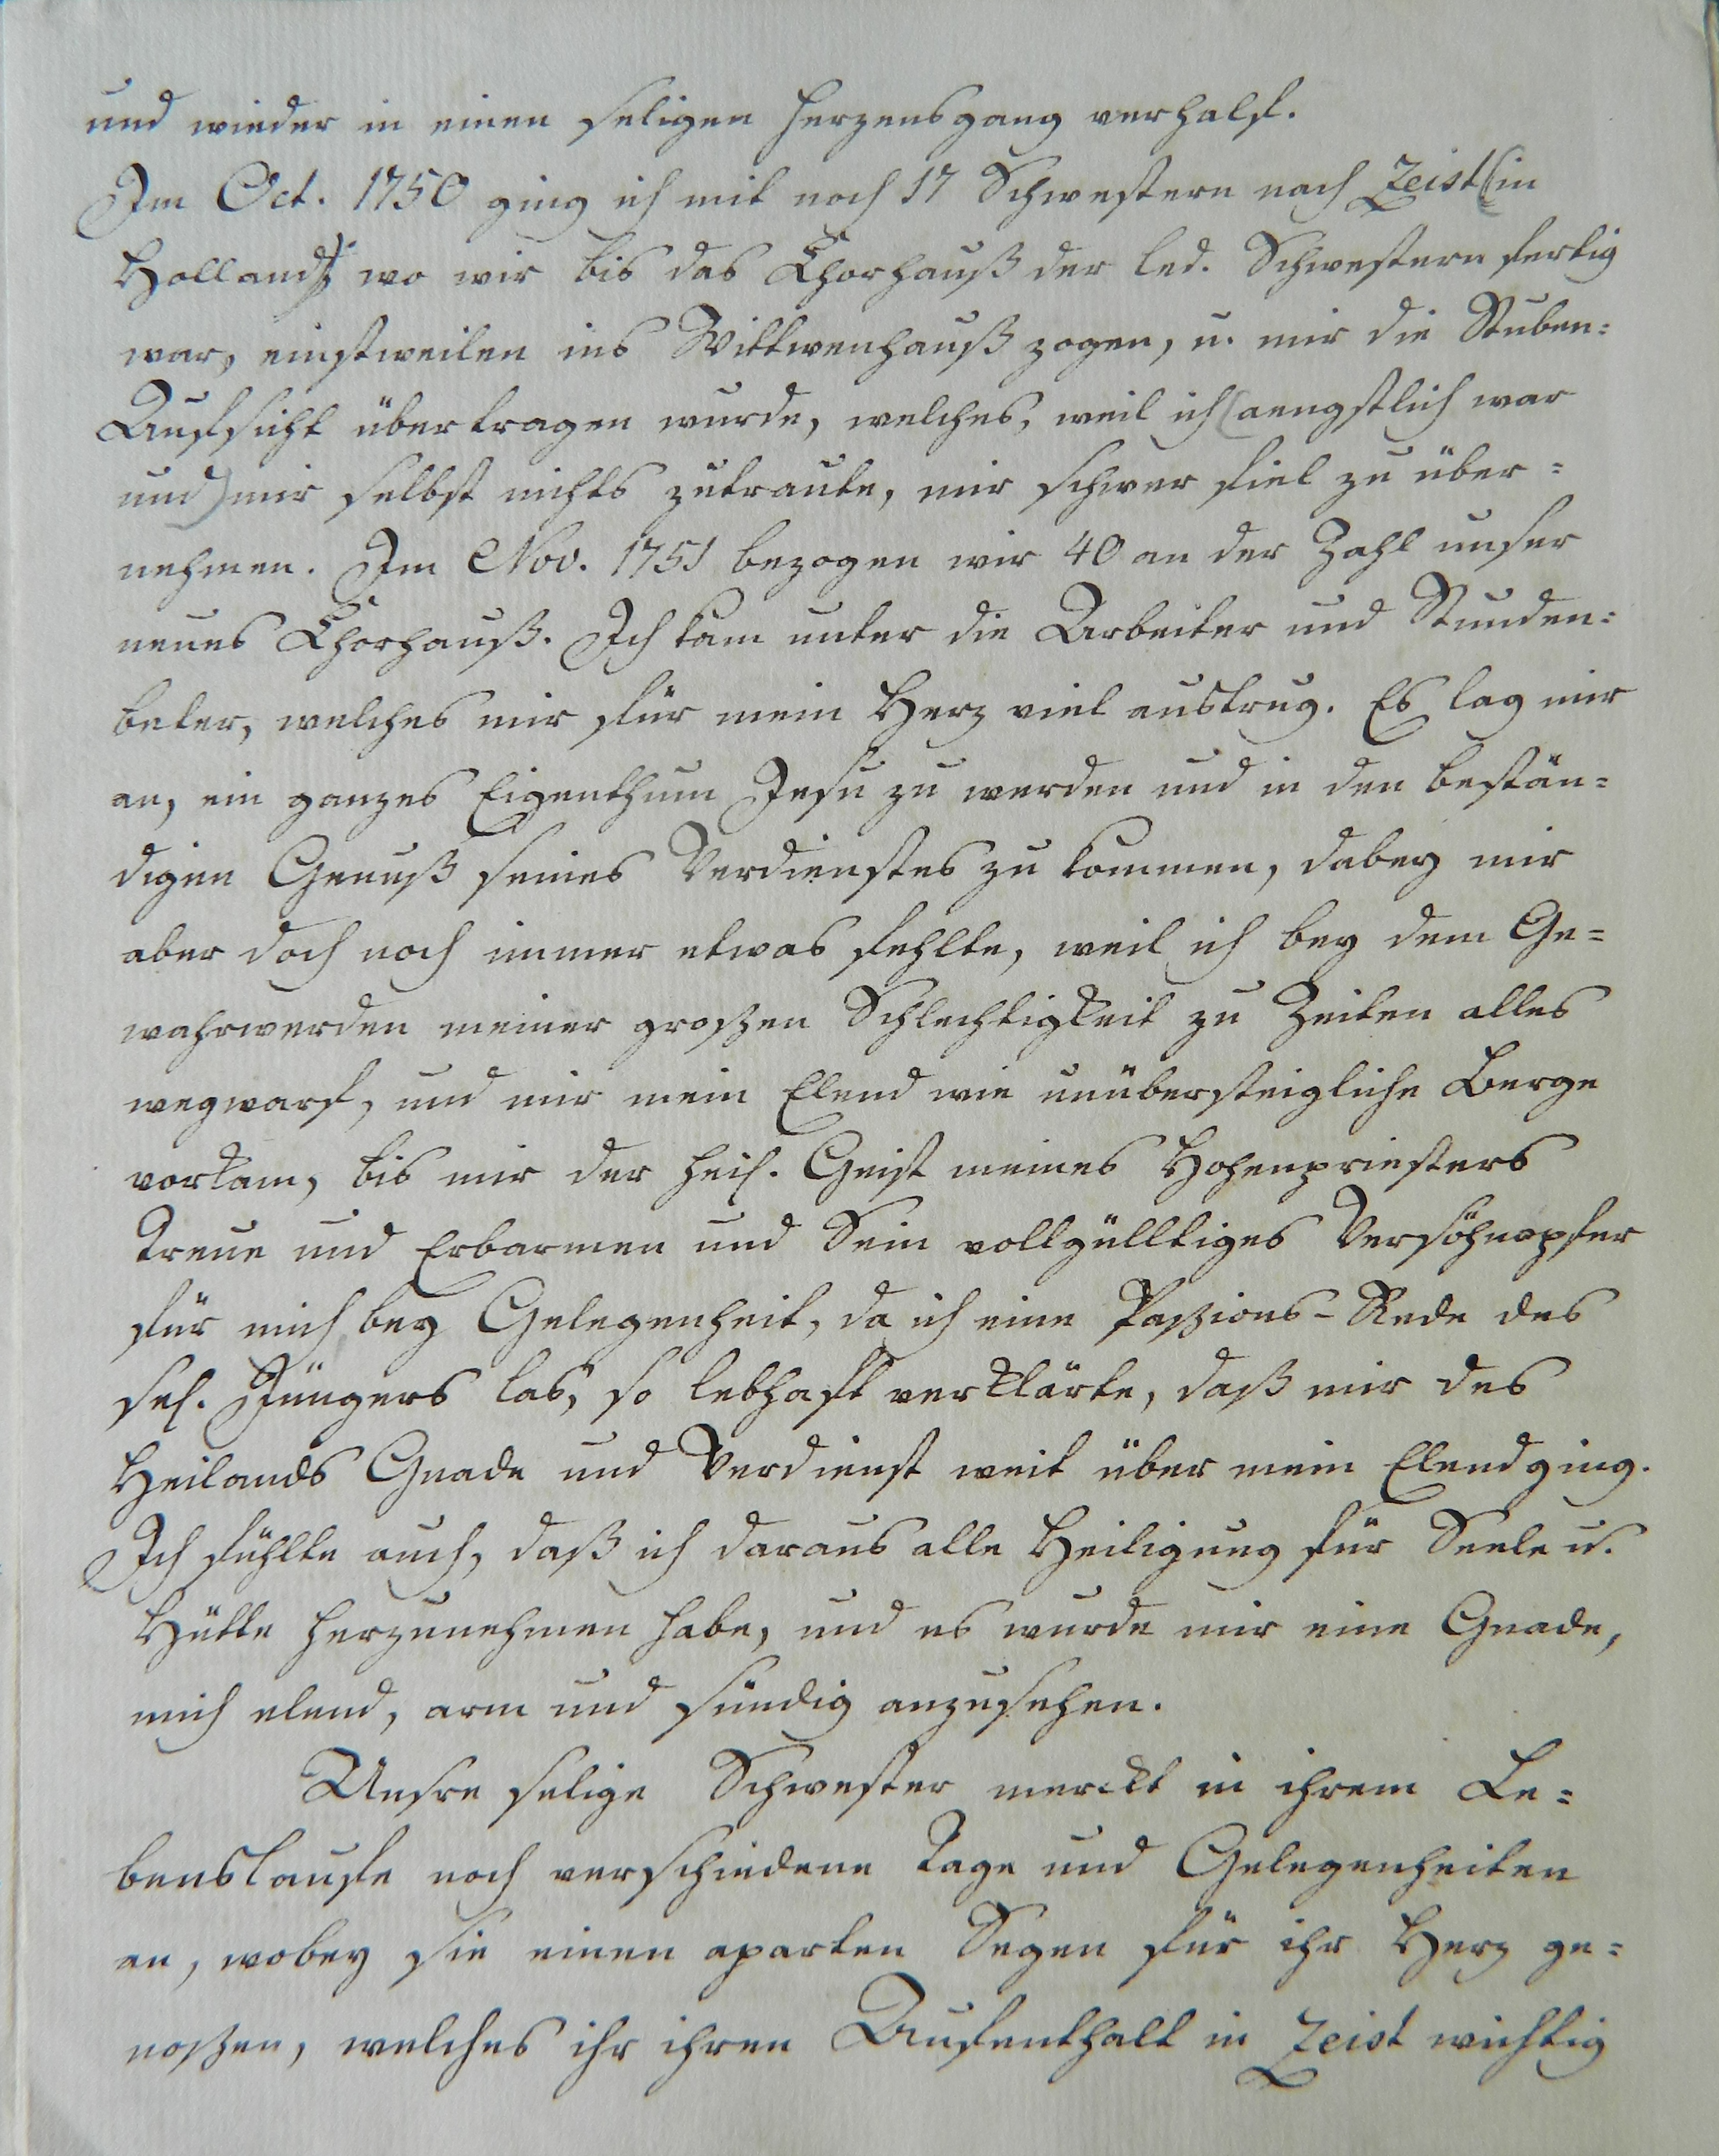 und wieder in einen seligen Herzensgang verhalf.
Im Oct. 1750 ging ich mit noch 17 Schwestern nach Zeist (in
Holland) wo wir bis das Chorhauß der led. Schwestern fertig
war, einstweilen ins Wittwenhauß zogen, u. mir die Stuben=
Aufsicht übertragen wurde, welches, weil ich (aengstlich war
und) mir selbst nichts zutraute, mir schwer fiel zu über=
nehmen. Im Nov. 1751 bezogen wir 40 an der Zahl unser
neues Chorhauß. Ich kam unter die Arbeiter und Stunden=
beter, welches mir für mein Herz viel austrug. Es lag mir
an, ein ganzes Eigenthum Jesu zu werden und in den bestän=
digen Genuß seines Verdienstes zu kommen, dabey mir
aber doch noch immer etwas fehlte, weil ich bey dem Ge=
wahrwerden meiner großen Schlechtigkeit zu Zeiten alles
wegwarf, und mir mein Elend wie unübersteigliche Berge
vorkam, bis mir der heil. Geist meines Hohenpriesters
Treue und Erbarmen und Sein vollgülltiges Versöhnopfer
für mich bey Gelegenheit, da ich eine Paßions-Rede des
sel. Jüngers las, so lebhaft verklärte, daß mir des
Heilands Gnade und Verdienst weit über mein Elend ging.
Ich fühlte auch, daß ich daraus alle Heiligung für Seele u.
Hütte herzunehmen habe, und es wurde mir eine Gnade,
mich elend, arm und sündig anzusehen.
Unsre selige Schwester merckt in ihrem Le=
benslaufe noch verschiedene Tage und Gelegenheiten
an, wobey sie einen aparten Segen für ihr Herz ge=
noßen, welches ihr ihren Aufenthalt in Zeist wichtig